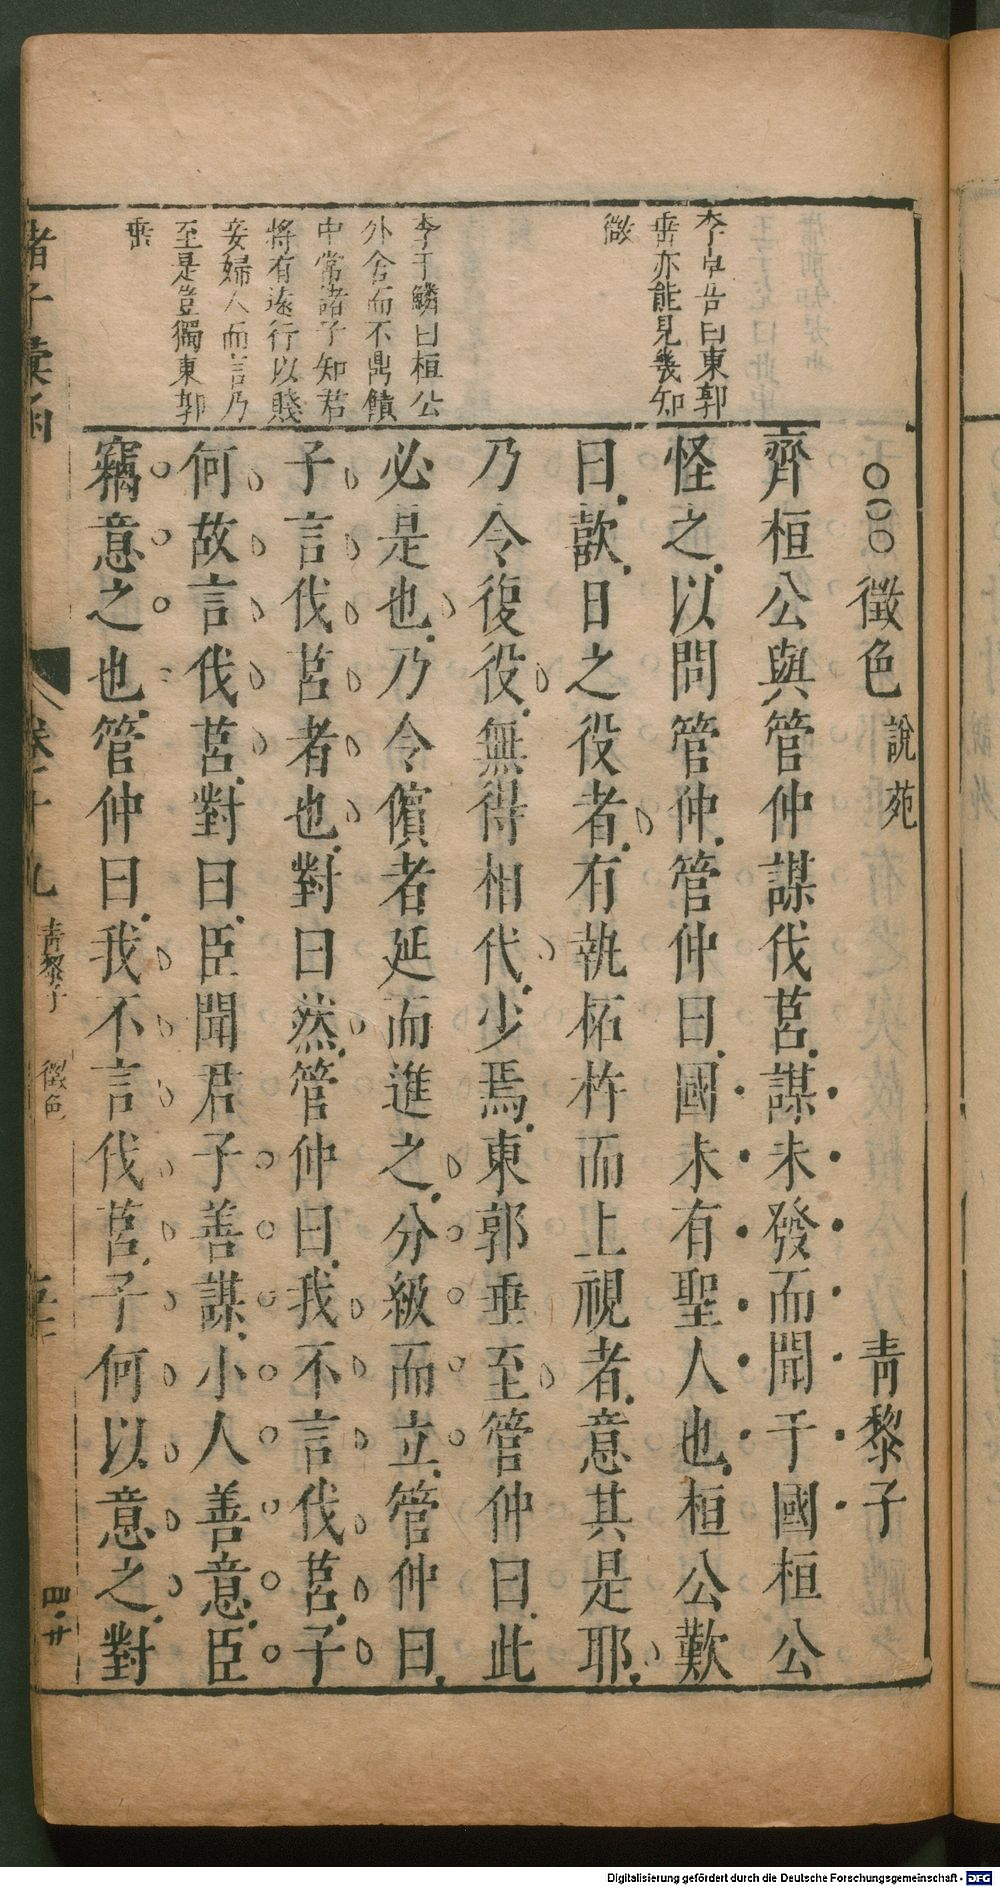 李卓吾曰東郭
垂亦能見幾知
微
李于鱗曰桓公
外舍而不鼎饋
中常諸子知君
將有遠行以賤
妾婦人而言乃
至是豈獨東郭
垂
○○○徵色 說苑 青黎子
齊桓公與管仲謀伐莒謀未發而聞于國桓公
怪之以問管仲管仲曰國未有聖人也桓公歎
曰歖日之役者有執柘杵而上視者意其是耶
乃令復役無得相代少焉東郭垂至管仲曰此
必是也乃令儐者延而進之分級而立管仲曰
子言伐莒者也對曰然管仲曰我不言伐莒子
何故言伐莒對曰臣聞君子善謀小人善意臣
竊意之也管仲曰我不言伐莒子何以意之對
諸子彙函 卷十九 青黎子 徵色
四廿
Digitalisierung gefördert durch die Deutsche Forschungsgemeinschaft - DFG